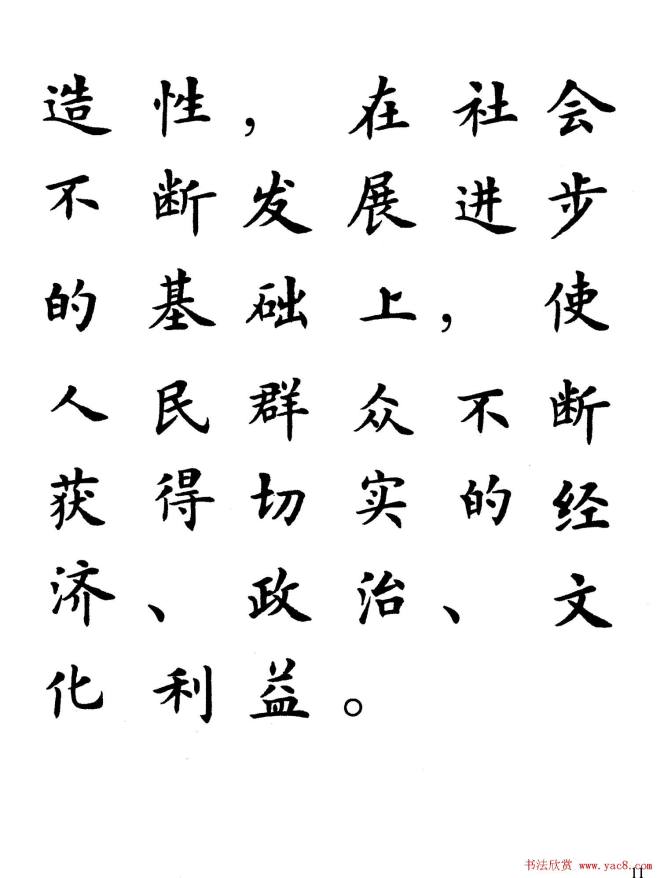 造性，在社会
不断发展进步
的基础上，使
人民群众不断
获得切实的经
济、政治、文
化利益。
书法欣赏 www.yac8.com
11